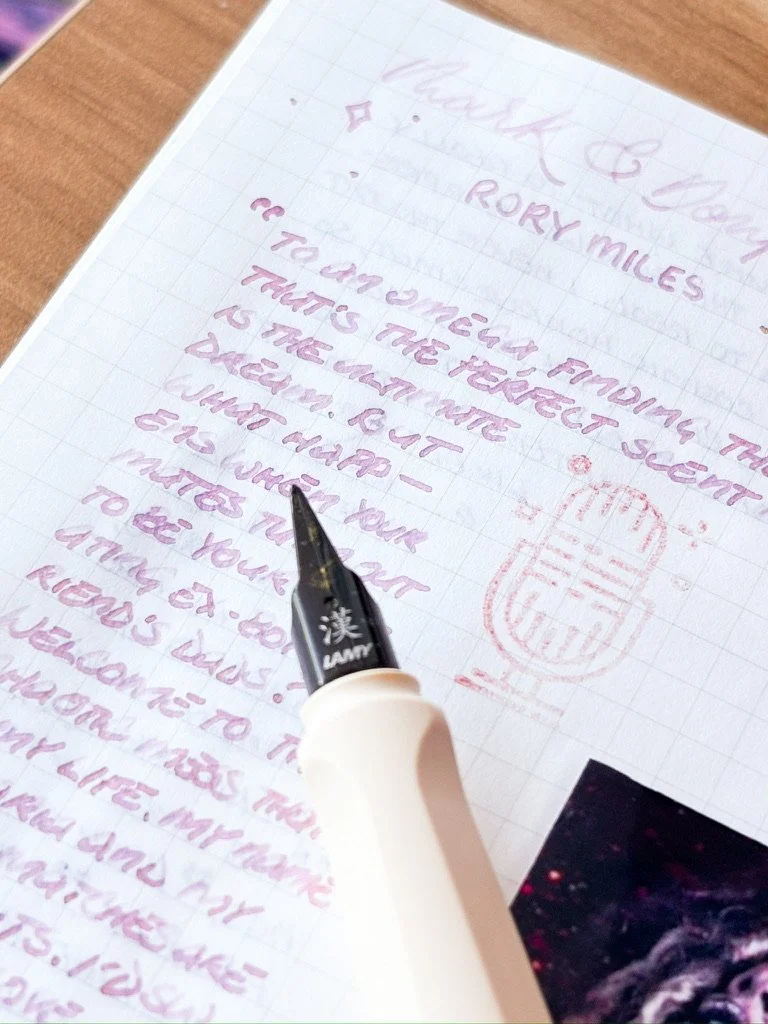 Mark & Rory
RORY MILES
“TO AN OMEGA, FINDING THE
THAT'S THE PERFECT SCENT
IS THE ULTIMATE
DREAM. BUT
WHAT HAPP-
ENS WHEN YOUR
MATES TURN OUT
TO BE YOUR
ATING EX-BO
RIEND'S DADS.
WELCOME TO TH
HAOTIC MESS THAT
MY LIFE. MY NAME
AND MY
MATCHES ARE
I'D SW
漢
LAMY